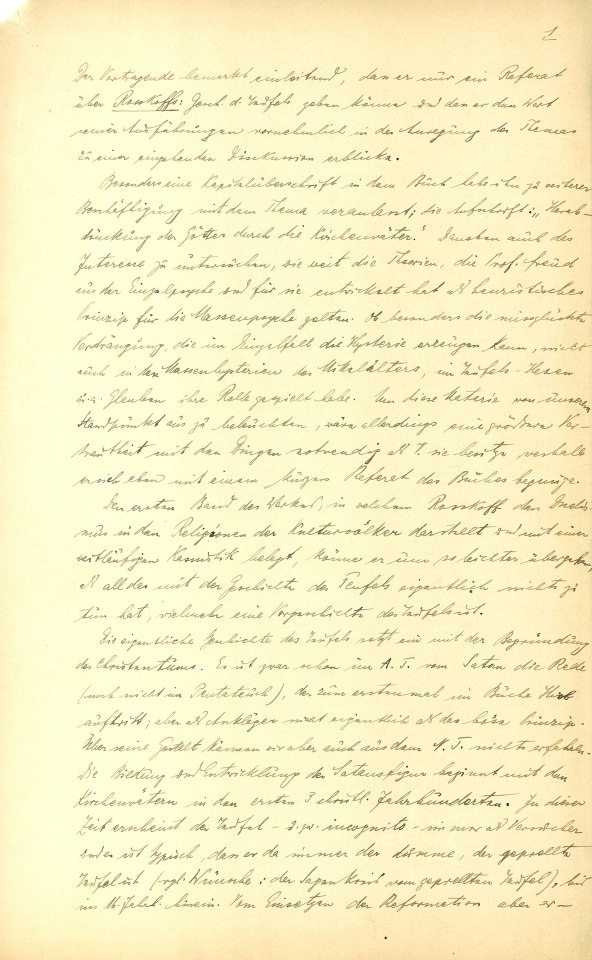 1
Der Vortragende bemerkt einleitend, dass er nur ein Referat
über Roskoffs: Gesch. d. Teufels geben könne und dass er den Wert
seiner Ausführungen vornehmlich in der Anregung des Themas
zu einer eingehenden Disskussion erblicke.
Besonders eine Kapitelüberschrift in dem Buch habe ihn zu weiterer
Beschäftigung mit dem Thema veranlasst; die Aufschrift: „Herab-
drückung der Götter durch die Kirchenväter." Daneben auch das
Interesse zu untersuchen, wie weit die Theorien, die Prof. Freud
aus der Einzelpsyche und für sie entwickelt hat als heuristisches
Prinzip für die Massenpsyche gelten. Ob besonders die missglückte
Verdrängung, die im Einzelfalle die Hysterie erzeugen kann, nicht
auch in den Massenhysterien des Mittelalters, im Teufels- Hexen
u.a. Glauben ihre Rolle gespielt habe. Um diese Materie von unserem
Standpunkt aus zu beleuchten, wäre allerdings eine grössere Ver-
trautheit mit den Dingen notwendig als V. sie besitze weshalb
er sich eben mit einem kurzen Referat des Buches begnüge.
Den ersten Band des Werkes, in welchem Roskoff den Dualis-
mus in den Religionen der Kulturvölker darstellt und mit einer
weitläufigen Kasuistik belegt, könne er um so leichter übergehen,
als all das mit der Geschichte des Teufels eigentlich nichts zu
tun hat, vielmehr eine Vorgeschichte des Teufels ist.
Die eigentliche Geschichte des Teufels setzt ein mit der Begründung
des Christentums. Es ist zwar schon im A. T. vom Satan die Rede
(noch nicht im Pentateuch), der zum erstenmal im Buche Hiob
auftritt; aber als Ankläger nicht eigentlich als das böse Prinzip.
Über seine Gestalt können wir aber auch aus dem N. T. nichts erfahren.
Die Bildung und Entwicklung der Satansfigur beginnt mit den
Kirchenvätern in den ersten 3 christl. Jahrhunderten. In dieser
Zeit erscheint der Teufel - incognito - immer als Versucher
und es ist typisch, dass er da immer der dumme, der geprellte
Teufel ist (vgl. Wünsche: der Sagenkreis vom geprellten Teufel), bis
ins 16. Jahrh. hinein. Vom Einsetzen der Reformation aber er-